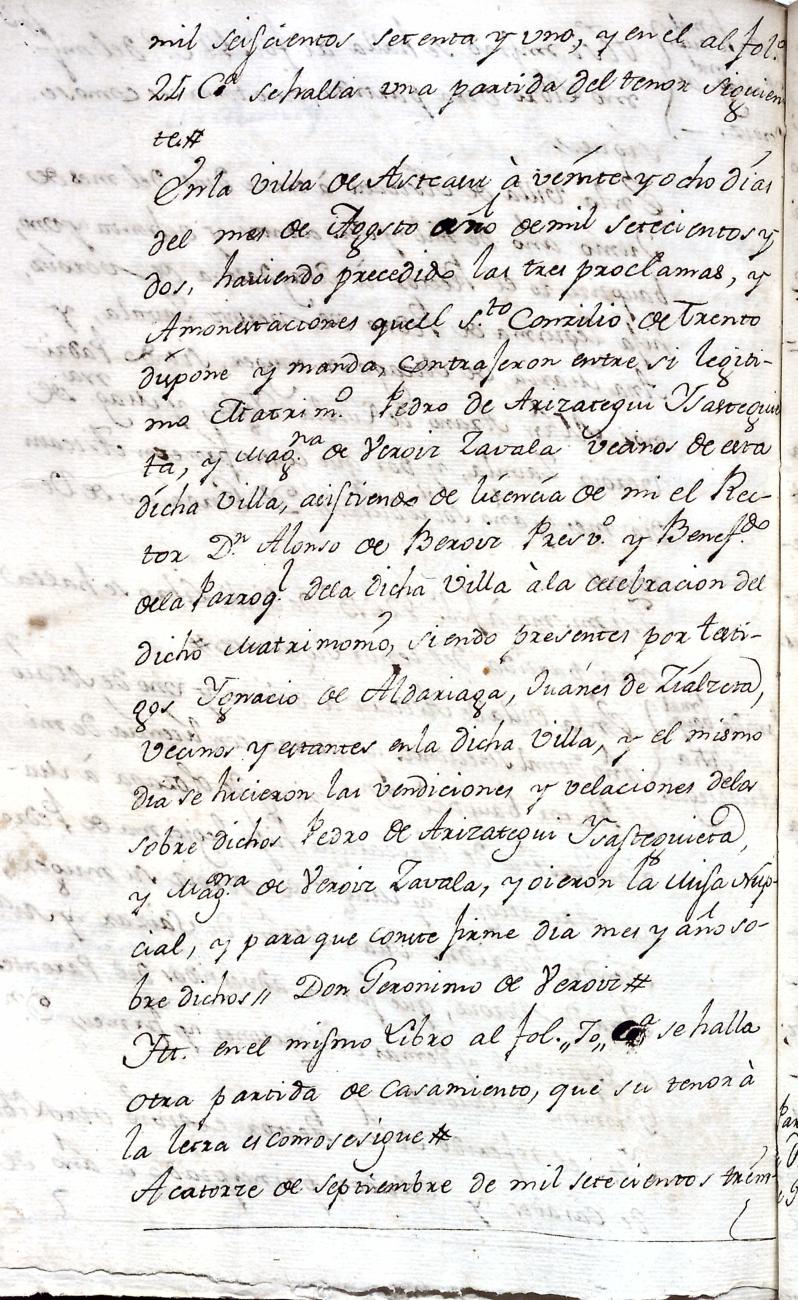 mil seiscientos setenta y uno, y en el al fol.º
24 Cª se halla una partida del tenor siguien
te#
En la villa de Asteasu à veinte y ocho días
del mes de Agosto año de mil setecientos y
dos, haviendo precedido las tres proclamas, y
Amonestaciones que el S.to Conzilio de Trento
dispone y manda, contrajeron entre si legiti-
mo Matrim.º Pedro de Arizategui Ysasteguie
ta, y Mag.na de Veroiz Zavala vecinos de esta
dicha villa, asistiendo de licencia de mi el Rec-
tor D.n Alonso de Beroiz Presv.º y Benef.do
dela Parroq.l dela dicha villa à la celebracion del
dicho Matrimonio, siendo presentes por testi-
gos Ygnacio de Aldariaga, Juanes de Zialzeta,
vecinos y estantes en la dicha villa, y el mismo
dia se hicieron las vendiciones y velaciones delos
sobre dichos Pedro de Arizategui Ysasteguieta,
y Mag.na de Veroiz Zavala, y oieron la Misa Nup-
cial, y para que conste firme dia mes y año so-
bre dichos,, Don Geronimo de Veroiz#
Ytt. en el mismo Libro al fol.,,70,, Cª se halla
otra partida de casamiento, que su tenor à
la letra es como se sigue#
A catorze de septiembre de mil setecientos trein-